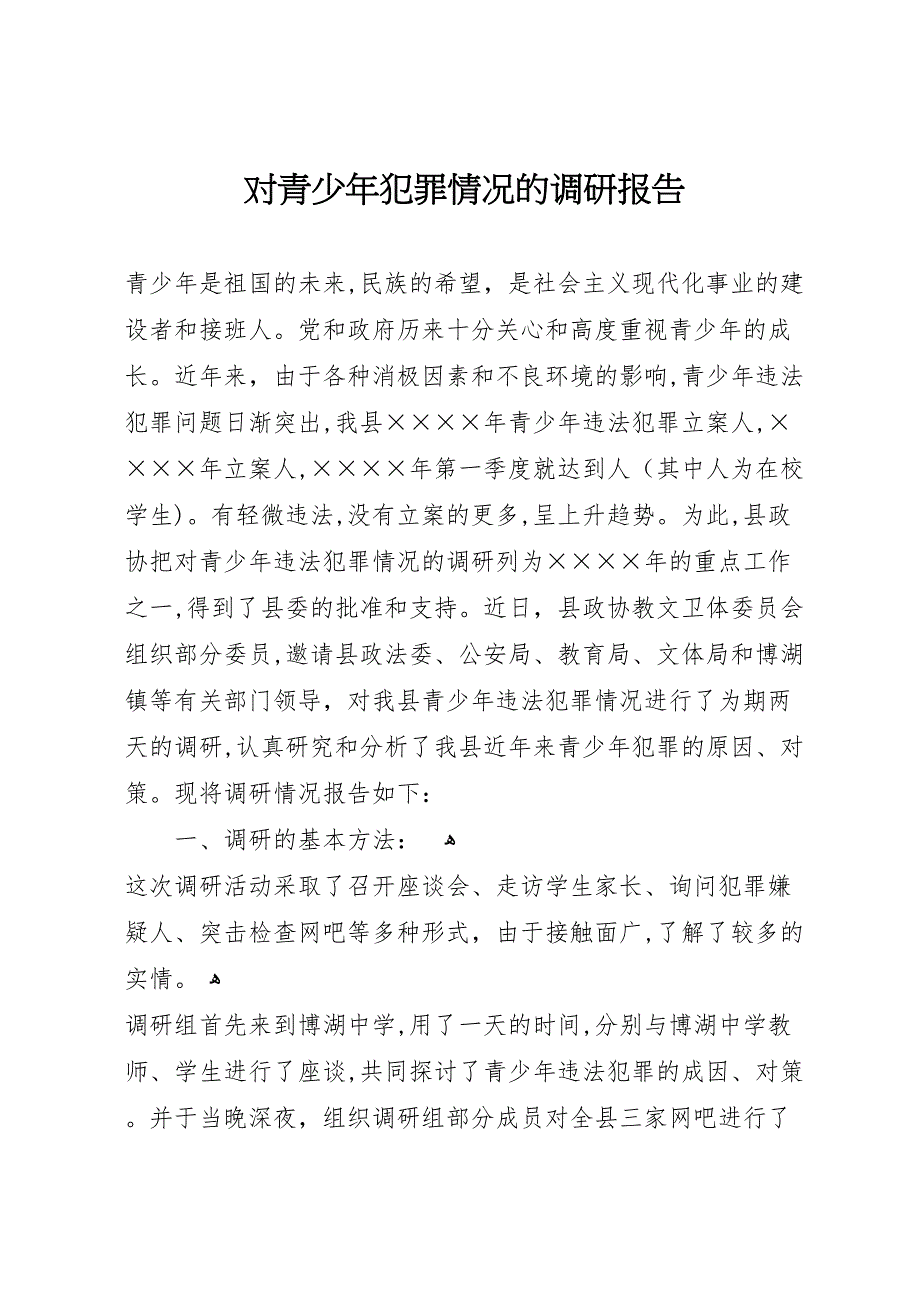 对青少年犯罪情况的调研报告
青少年是祖国的未来,民族的希望，是社会主义现代化事业的建
设者和接班人。党和政府历来十分关心和高度重视青少年的成
长。近年来，由于各种消极因素和不良环境的影响,青少年违法
犯罪问题日渐突出,我县××××年青少年违法犯罪立案人,×
×××年立案人,××××年第一季度就达到人（其中人为在校
学生)。有轻微违法,没有立案的更多,呈上升趋势。为此,县政
协把对青少年违法犯罪情况的调研列为××××年的重点工作
之一,得到了县委的批准和支持。近日，县政协教文卫体委员会
组织部分委员,邀请县政法委、公安局、教育局、文体局和博湖
镇等有关部门领导，对我县青少年违法犯罪情况进行了为期两
天的调研,认真研究和分析了我县近年来青少年犯罪的原因、对
策。现将调研情况报告如下:
一、调研的基本方法： ﻫ
这次调研活动采取了召开座谈会、走访学生家长、询问犯罪嫌
疑人、突击检查网吧等多种形式，由于接触面广,了解了较多的
实情。 ﻫ
调研组首先来到博湖中学,用了一天的时间,分别与博湖中学教
师、学生进行了座谈,共同探讨了青少年违法犯罪的成因、对策
。并于当晚深夜，组织调研组部分成员对全县三家网吧进行了